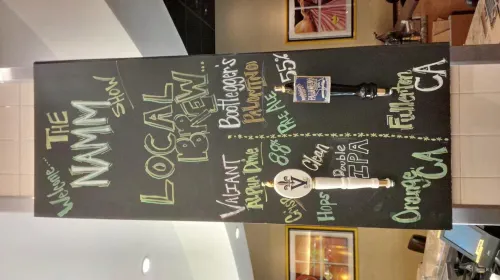 Welcome...
THE
NAMM
SHOW
LOCAL
BREW...
Bootlegger's
Palomino
Pale Ale
5.5%
Fullerton
CA
VALIANT
Alpha Dive
8.8%
Clean
Double
IPA
Hops
Orange
CA